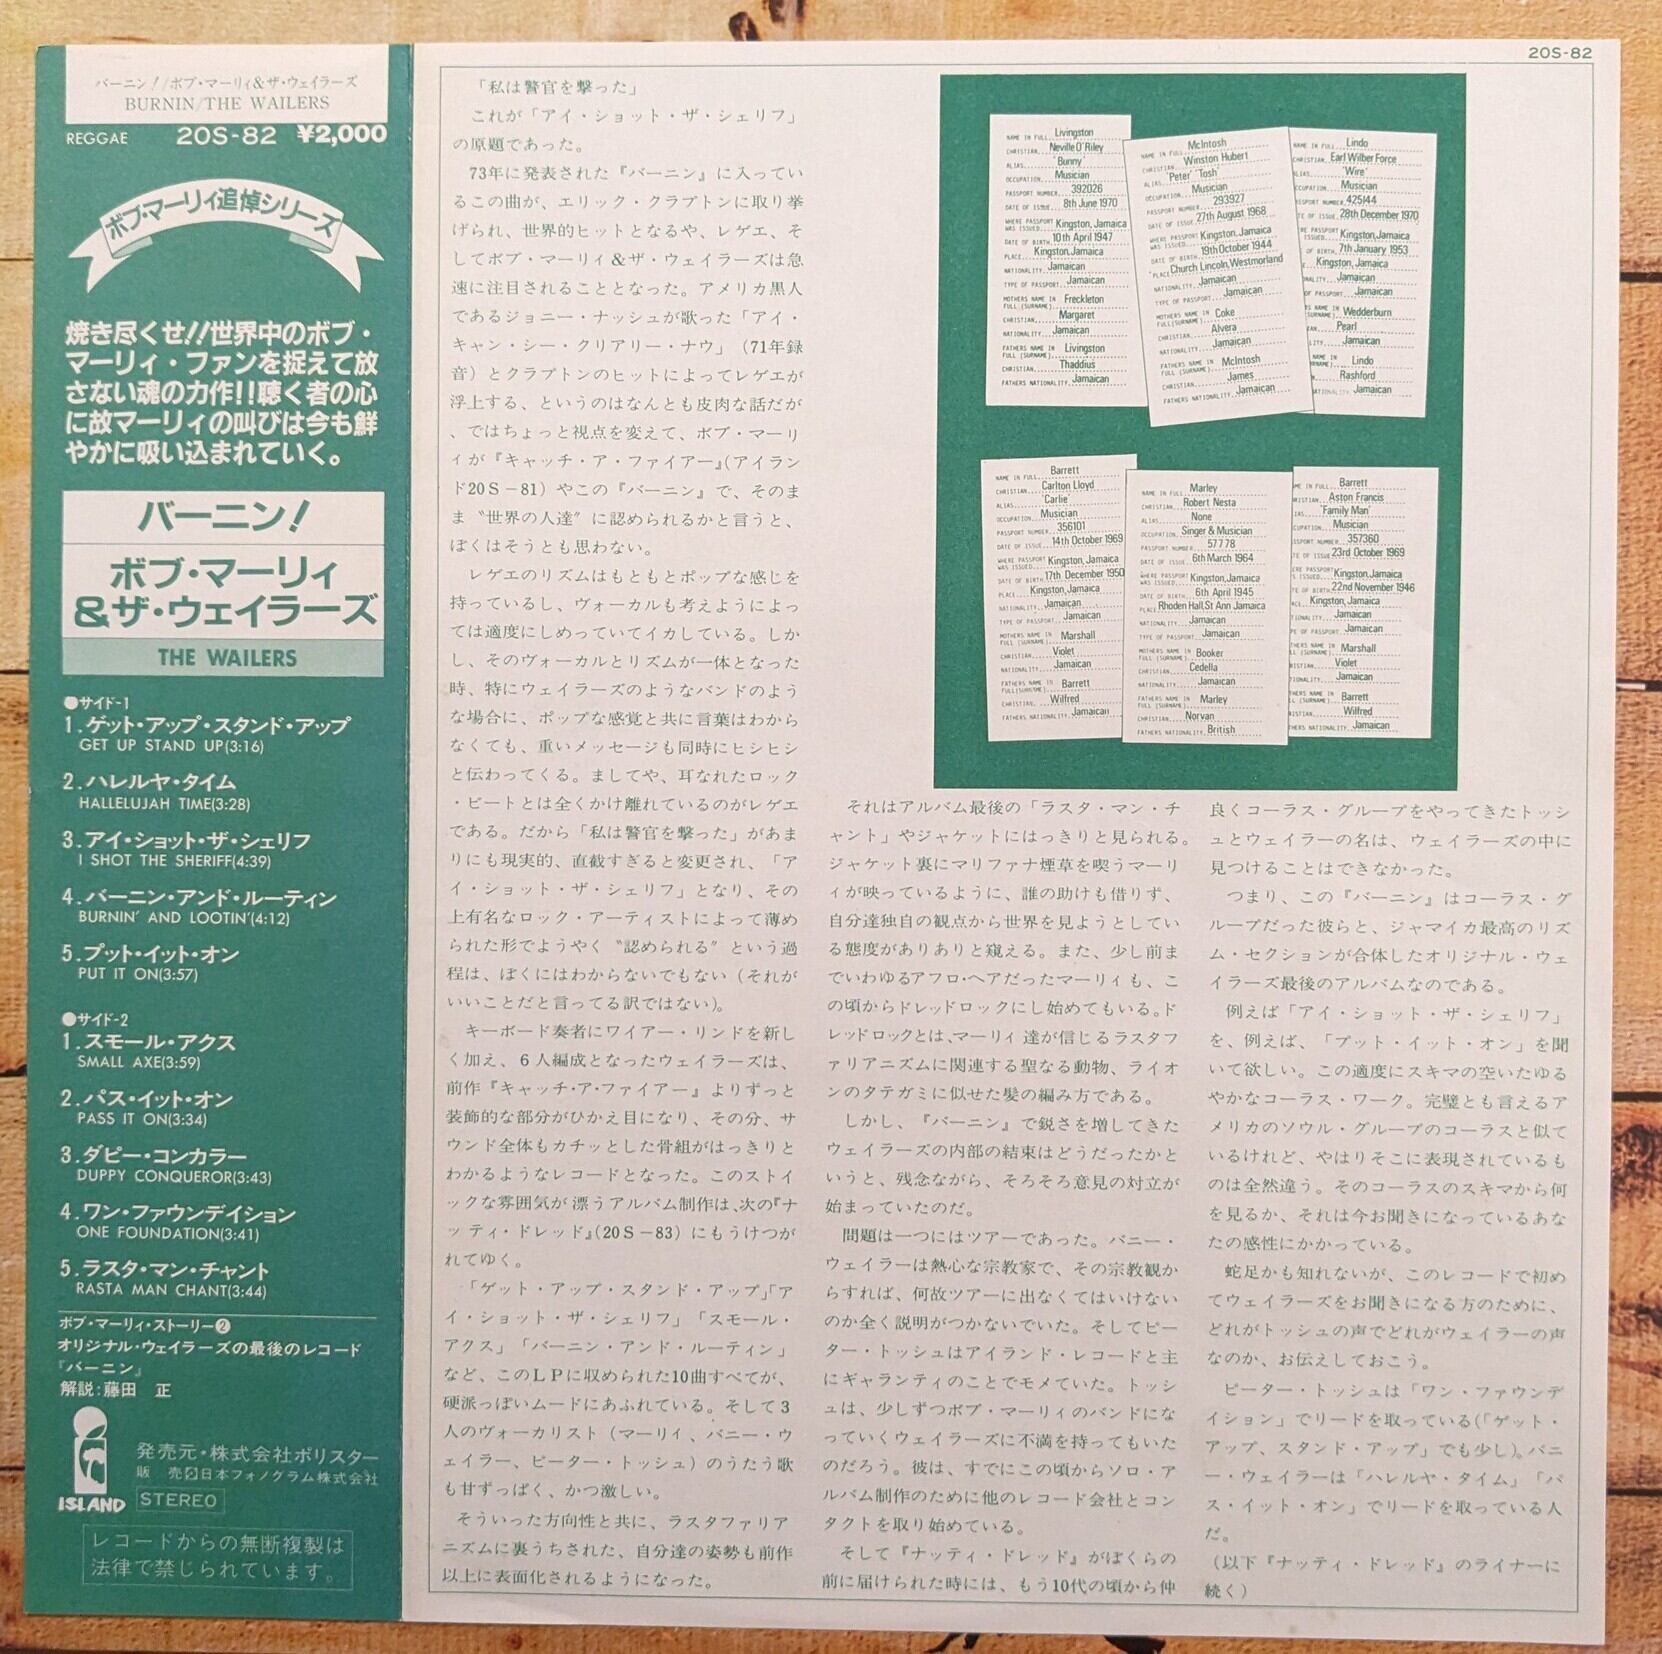 バーニン!/ボブ・マーリィ&ザ・ウェイラーズ
BURNIN/THE WAILERS
REGGAE 20S-82 ¥2,000
ボブ・マーリィ追悼シリーズ
焼き尽くせ!!世界中のボブ・
マーリィ・ファンを捉えて放
さない魂の力作!!聴く者の心
に故マーリィの叫びは今も鮮
やかに吸い込まれていく。
バーニン!
ボブ・マーリィ
&ザ・ウェイラーズ
THE WAILERS
●サイド-1
1.ゲット・アップ・スタンド・アップ
GET UP STAND UP(3:16)
2.ハレルヤ・タイム
HALLELUJAH TIME(3:28)
3.アイ・ショット・ザ・シェリフ
I SHOT THE SHERIFF(4:39)
4.バーニン・アンド・ルーティン
BURNIN' AND LOOTIN'(4:12)
5.プット・イット・オン
PUT IT ON(3:57)
●サイド-2
1.スモール・アクス
SMALL AXE(3:59)
2.パス・イット・オン
PASS IT ON(3:34)
3.ダピー・コンカラー
DUPPY CONQUEROR(3:43)
4.ワン・ファウンデイション
ONE FOUNDATION(3:41)
5.ラスタ・マン・チャント
RASTA MAN CHANT(3:44)
ボブ・マーリィ・ストーリー②
オリジナル・ウェイラーズの最後のレコード
『バーニン』
解説:藤田 正
ISLAND
発売元・株式会社ポリスター
販 売 日本フォノグラム株式会社
STEREO
レコードからの無断複製は
法律で禁じられています。
20S-82
「私は警官を撃った」
これが「アイ・ショット・ザ・シェリフ」
の原題であった。
73年に発表された『バーニン』に入ってい
るこの曲が、エリック・クラプトンに取り挙
げられ、世界的ヒットとなるや、レゲエ、そ
してボブ・マーリィ&ザ・ウェイラーズは急
速に注目されることとなった。アメリカ黒人
であるジョニー・ナッシュが歌った「アイ・
キャン・シー・クリアリー・ナウ」(71年録
音)とクラプトンのヒットによってレゲエが
浮上する、というのはなんとも皮肉な話だが
、ではちょっと視点を変えて、ボブ・マーリ
ィが『キャッチ・ア・ファイアー』(アイラン
ド20S-81)やこの『バーニン』で、そのま
ま〝世界の人達〟に認められるかと言うと、
ぼくはそうとも思わない。
レゲエのリズムはもともとポップな感じを
持っているし、ヴォーカルも考えようによっ
ては適度にしめっていてイカしている。しか
し、そのヴォーカルとリズムが一体となった
時、特にウェイラーズのようなバンドのよう
な場合に、ポップな感覚と共に言葉はわから
なくても、重いメッセージも同時にヒシヒシ
と伝わってくる。ましてや、耳なれたロック
・ビートとは全くかけ離れているのがレゲエ
である。だから「私は警官を撃った」があま
りにも現実的、直截すぎると変更され、「ア
イ・ショット・ザ・シェリフ」となり、その
上有名なロック・アーティストによって薄め
られた形でようやく〝認められる〟という過
程は、ぼくにはわからないでもない(それが
いいことだと言ってる訳ではない)。
キーボード奏者にワイアー・リンドを新し
く加え、6人編成となったウェイラーズは、
前作『キャッチ・ア・ファイアー』よりずっと
装飾的な部分がひかえ目になり、その分、サ
ウンド全体もカチッとした骨組がはっきりと
わかるようなレコードとなった。このストイ
ックな雰囲気が漂うアルバム制作は、次の『ナ
ッティ・ドレッド』(20S-83)にもうけつが
れてゆく。
「ゲット・アップ・スタンド・アップ」「ア
イ・ショット・ザ・シェリフ」「スモール・
アクス」「バーニン・アンド・ルーティン」
など、このLPに収められた10曲すべてが、
硬派っぽいムードにあふれている。そして3
人のヴォーカリスト(マーリィ、バニー・ウ
ェイラー、ピーター・トッシュ)のうたう歌
も甘ずっぱく、かつ激しい。
そういった方向性と共に、ラスタファリア
ニズムに裏うちされた、自分達の姿勢も前作
以上に表面化されるようになった。
NAME IN FULL Livingston
CHRISTIAN Neville O'Riley
ALIAS 'Bunny'
OCCUPATION Musician
PASSPORT NUMBER 392026
DATE OF ISSUE 8th June 1970
WHERE PASSPORT WAS ISSUED Kingston, Jamaica
DATE OF BIRTH 10th April 1947
PLACE Kingston, Jamaica
NATIONALITY Jamaican
TYPE OF PASSPORT Jamaican
MOTHERS NAME IN FULL (SURNAME) Freckleton
CHRISTIAN Margaret
NATIONALITY Jamaican
FATHERS NAME IN FULL (SURNAME) Livingston
CHRISTIAN Thaddius
FATHERS NATIONALITY Jamaican
NAME IN FULL McIntosh
CHRISTIAN Winston Hubert
ALIAS 'Peter' 'Tosh'
OCCUPATION Musician
PASSPORT NUMBER 293927
DATE OF ISSUE 27th August 1968
WHERE PASSPORT WAS ISSUED Kingston, Jamaica
DATE OF BIRTH 19th October 1944
PLACE Church Lincoln, Westmorland
NATIONALITY Jamaican
TYPE OF PASSPORT Jamaican
MOTHERS NAME IN FULL (SURNAME) Coke
CHRISTIAN Alvera
NATIONALITY Jamaican
FATHERS NAME IN FULL (SURNAME) McIntosh
CHRISTIAN James
FATHERS NATIONALITY Jamaican
NAME IN FULL Lindo
CHRISTIAN Earl Wilber Force
ALIAS 'Wire'
OCCUPATION Musician
PASSPORT NUMBER 425144
DATE OF ISSUE 28th December 1970
ISSUED Kingston, Jamaica
OF BIRTH 7th January 1953
Kingston, Jamaica
Jamaican
OF PASSPORT Jamaican
Wedderburn
Pearl
Jamaican
Lindo
Rashford
Jamaican
NAME IN FULL Barrett
CHRISTIAN Carlton Lloyd
ALIAS 'Carlie'
OCCUPATION Musician
PASSPORT NUMBER 356101
DATE OF ISSUE 14th October 1969
WHERE PASSPORT WAS ISSUED Kingston, Jamaica
DATE OF BIRTH 17th December 1950
PLACE Kingston, Jamaica
NATIONALITY Jamaican
TYPE OF PASSPORT Jamaican
MOTHERS NAME IN FULL (SURNAME) Marshall
CHRISTIAN Violet
NATIONALITY Jamaican
FATHERS NAME IN FULL (SURNAME) Barrett
CHRISTIAN Wilfred
FATHERS NATIONALITY Jamaican
NAME IN FULL Marley
CHRISTIAN Robert Nesta
ALIAS None
OCCUPATION Singer & Musician
PASSPORT NUMBER 57778
DATE OF ISSUE 6th March 1964
WHERE PASSPORT WAS ISSUED Kingston, Jamaica
DATE OF BIRTH 6th April 1945
PLACE Rhoden Hall, St Ann Jamaica
NATIONALITY Jamaican
TYPE OF PASSPORT Jamaican
MOTHERS NAME IN FULL (SURNAME) Booker
CHRISTIAN Cedella
NATIONALITY Jamaican
FATHERS NAME IN FULL (SURNAME) Marley
CHRISTIAN Norvan
FATHERS NATIONALITY British
Barrett
Aston Francis
'Family Man'
Musician
357360
23rd October 1969
Kingston, Jamaica
22nd November 1946
Kingston, Jamaica
Jamaican
Jamaican
Marshall
Violet
Jamaican
Barrett
Wilfred
FATHERS NATIONALITY Jamaican
それはアルバム最後の「ラスタ・マン・チ
ャント」やジャケットにはっきりと見られる。
ジャケット裏にマリファナ煙草を喫うマーリ
ィが映っているように、誰の助けも借りず、
自分達独自の観点から世界を見ようとしてい
る態度がありありと窺える。また、少し前ま
でいわゆるアフロ・ヘアだったマーリィも、こ
の頃からドレッドロックにし始めてもいる。ド
レッドロックとは、マーリィ達が信じるラスタフ
ァリアニズムに関連する聖なる動物、ライオ
ンのタテガミに似せた髪の編み方である。
しかし、『バーニン』で鋭さを増してきた
ウェイラーズの内部の結束はどうだったかと
いうと、残念ながら、そろそろ意見の対立が
始まっていたのだ。
問題は一つにはツアーであった。バニー・
ウェイラーは熱心な宗教家で、その宗教観か
らすれば、何故ツアーに出なくてはいけない
のか全く説明がつかないでいた。そしてピー
ター・トッシュはアイランド・レコードと主
にギャランティのことでモメていた。トッシ
ュは、少しずつボブ・マーリィのバンドにな
っていくウェイラーズに不満を持ってもいた
のだろう。彼は、すでにこの頃からソロ・ア
ルバム制作のために他のレコード会社とコン
タクトを取り始めている。
そして『ナッティ・ドレッド』がぼくらの
前に届けられた時には、もう10代の頃から仲
良くコーラス・グループをやってきたトッシ
ュとウェイラーの名は、ウェイラーズの中に
見つけることはできなかった。
つまり、この『バーニン』はコーラス・グ
ループだった彼らと、ジャマイカ最高のリズ
ム・セクションが合体したオリジナル・ウェ
イラーズ最後のアルバムなのである。
例えば「アイ・ショット・ザ・シェリフ」
を、例えば、「プット・イット・オン」を聞
いて欲しい。この適度にスキマの空いたゆる
やかなコーラス・ワーク。完璧とも言えるア
メリカのソウル・グループのコーラスと似て
いるけれど、やはりそこに表現されているも
のは全然違う。そのコーラスのスキマから何
を見るか、それは今お聞きになっているあな
たの感性にかかっている。
蛇足かも知れないが、このレコードで初め
てウェイラーズをお聞きになる方のために、
どれがトッシュの声でどれがウェイラーの声
なのか、お伝えしておこう。
ピーター・トッシュは「ワン・ファウンデ
イション」でリードを取っている(「ゲット・
アップ、スタンド・アップ」でも少し)。バニ
ー・ウェイラーは「ハレルヤ・タイム」「パ
ス・イット・オン」でリードを取っている人
だ。
(以下『ナッティ・ドレッド』のライナーに
続く)